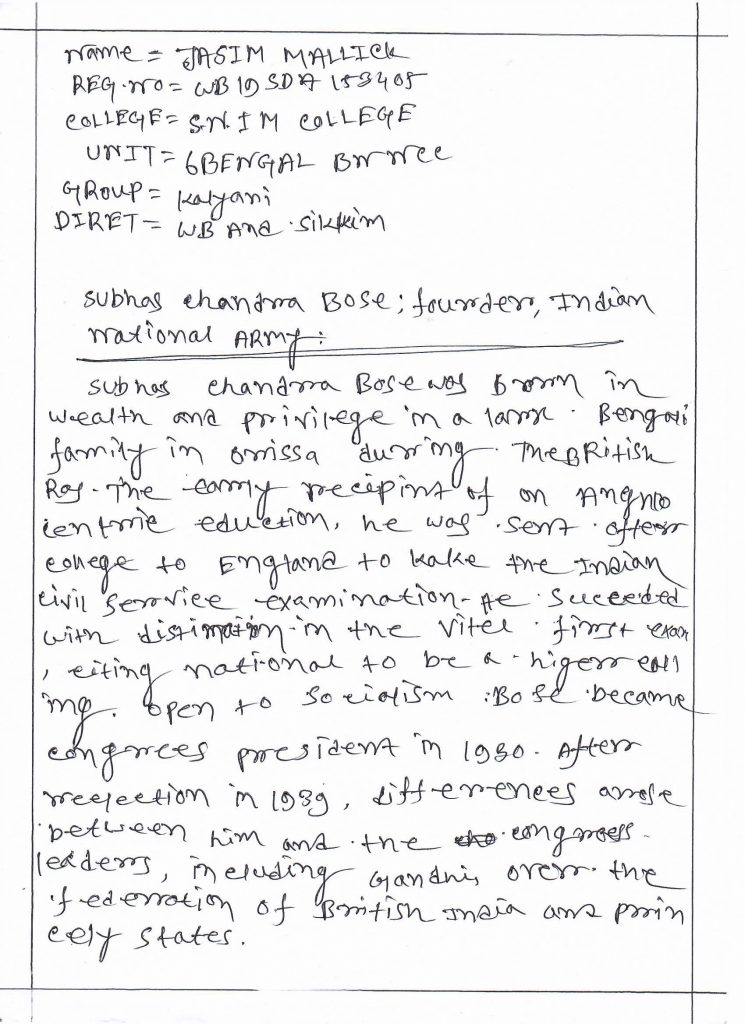 Name = JASIM MALLICK
REG. NO = WB19 SDA 153405
COLLEGE = S.N. I M COLLEGE
UNIT = 6 BENGAL BN NCC
GROUP = Kalyani
DIRET = WB And Sikkim
Subhas Chandra BOSE; founder, Indian
National ARMY:
Subhas Chandra Bose was born in
wealth and privilege in a large Bengali
family in Orissa during The BRitish
Raj. The early recipint of an Anglo
centric eduction, he was sent after
college to England to kake the Indian
Civil Service examination. He Succeeded
with in the first exam
, citing national to be a higerr call
ing. Open to Socialism : Bose became
congrees president in 1930. After
reejection in 1939, differences arose
between him and the congress
leaders, including Gandhi, over the
federation of British India and prin
cely states.